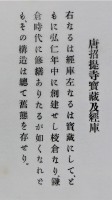 唐招提寺寶藏及經庫
右なるは經庫左なるは寶藏にして、と
もに弘仁年中に創建せし校倉なり鎌
倉時代に修繕ありたるか如くなれと
も、その構造は總て舊態を存せり。